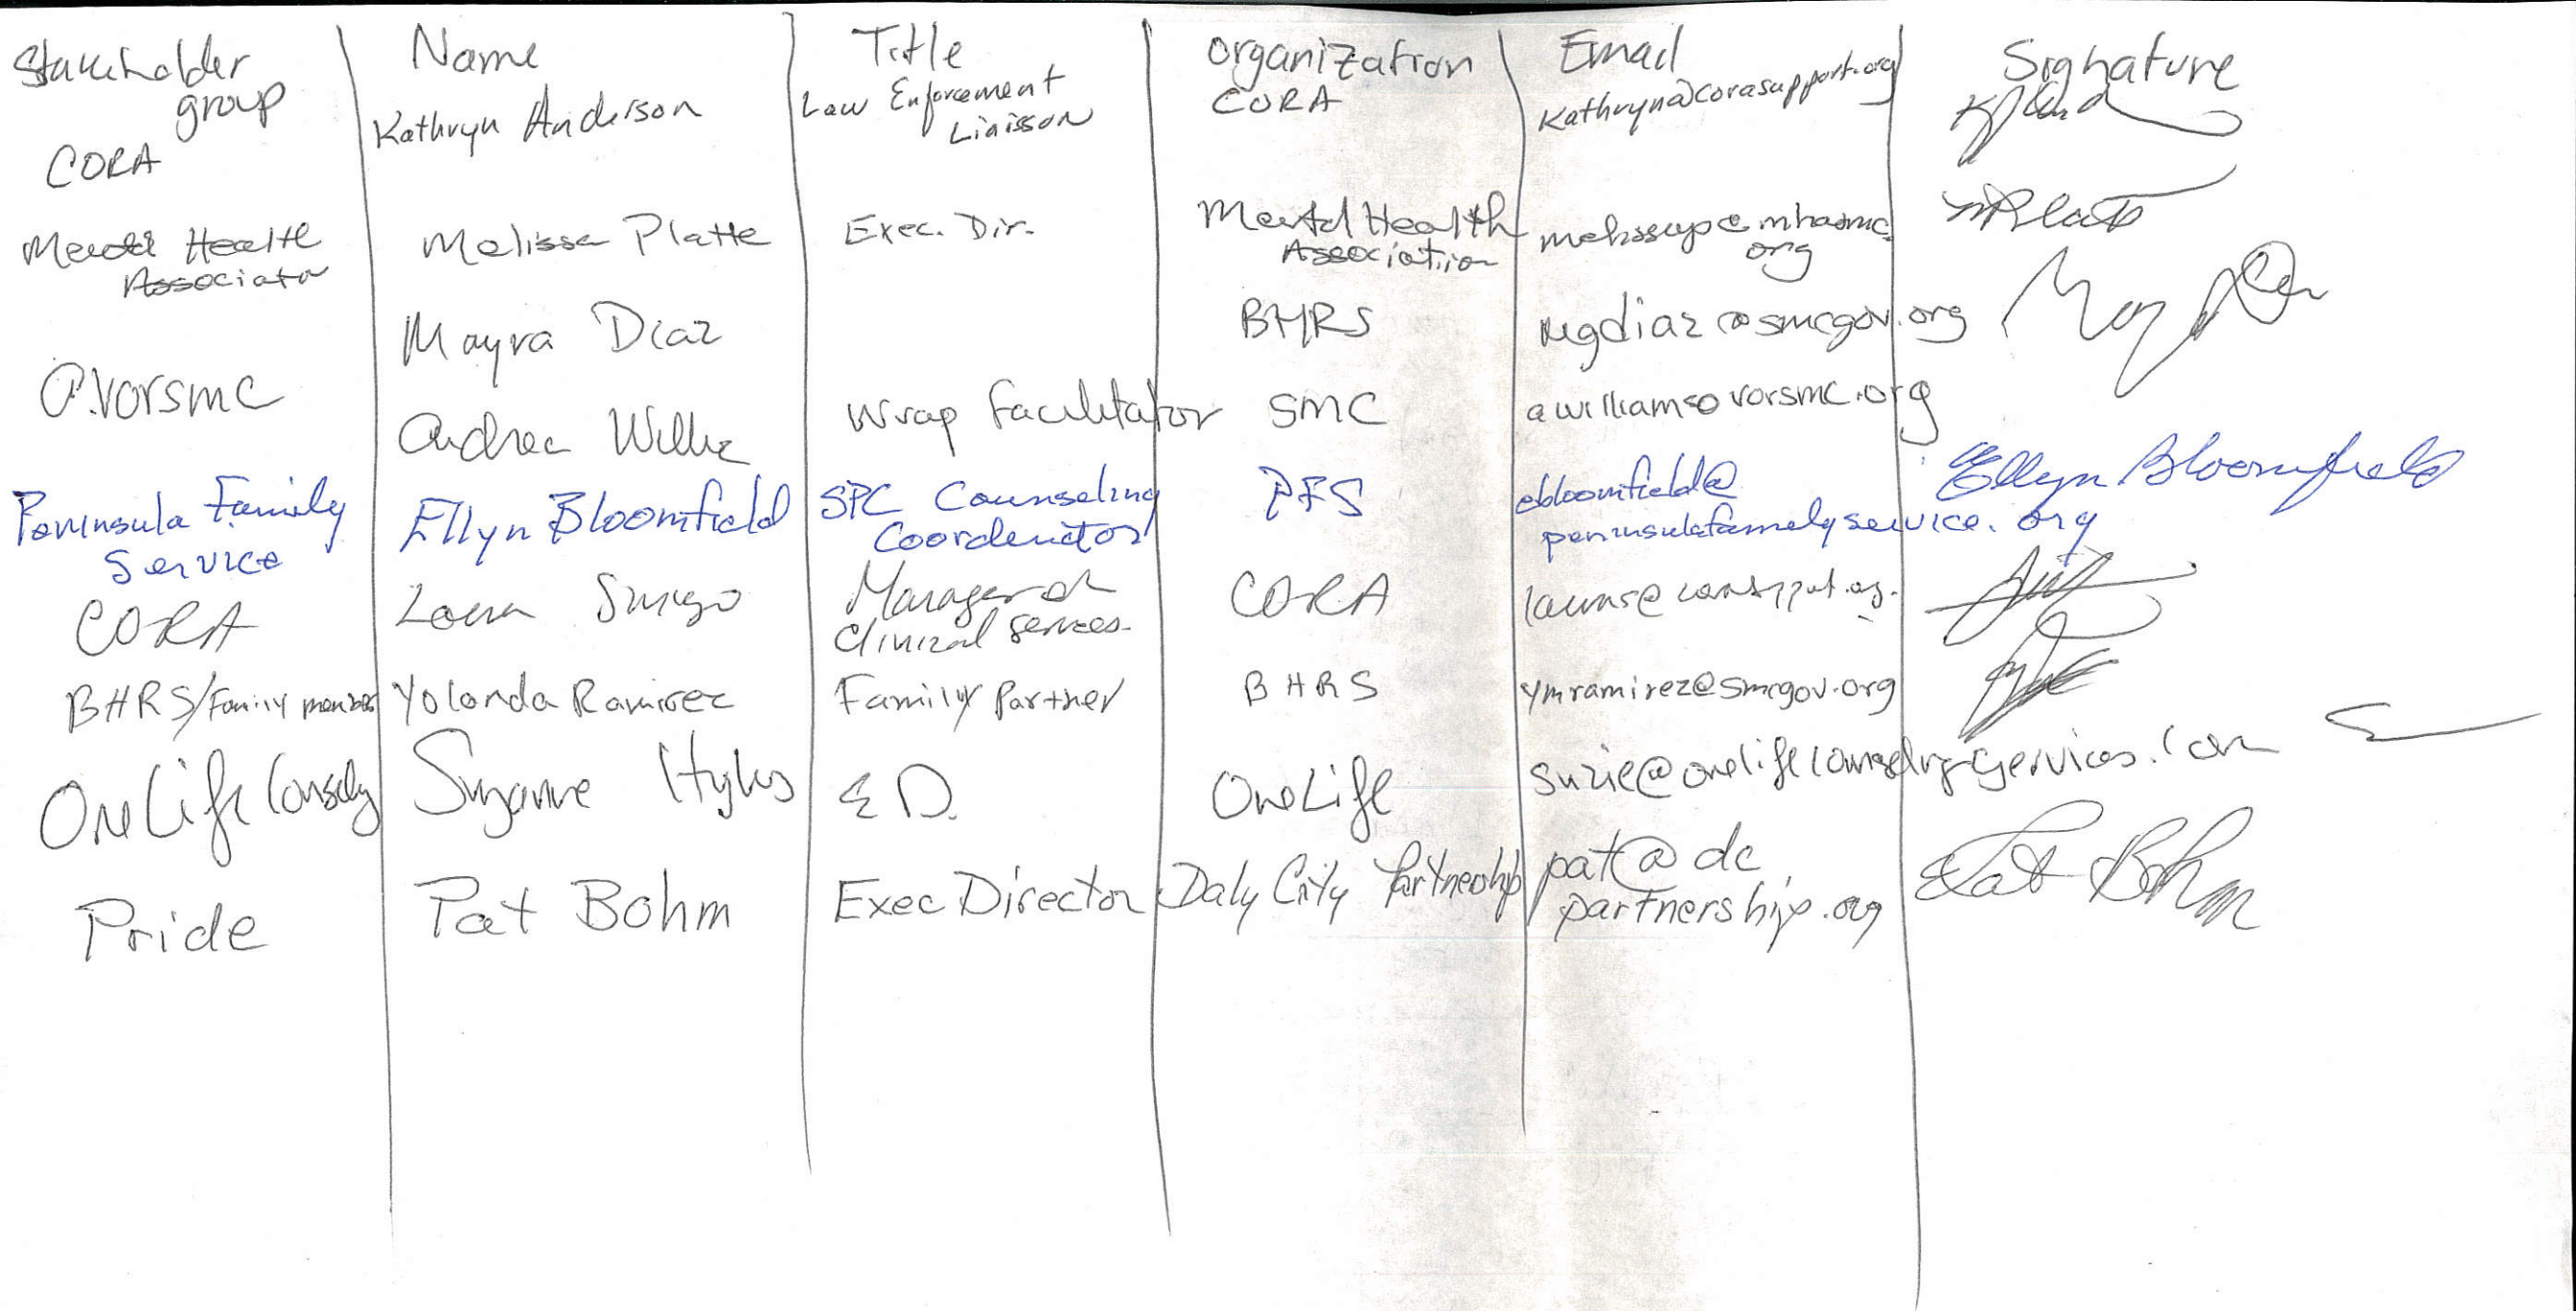 Stakeholder group Name Title Organization Email Signature
CORA Kathryn Anderson Law Enforcement Liaisson CORA Kathryna@corasupport.org
Mental Health Association Melissa Platte Exec. Dir. Mental Health Association melissap@mhasmc.org
Mayra Diaz BHRS mgdiaz@smcgov.org
vorsmc Andrea Wrap Facilitator SMC awilliams@vorsmc.org
Peninsula Family Service Ellyn Bloomfield SPC Counseling Coordinator PFS ebloomfield@peninsulafamilyservice.org Ellyn Bloomfield
CORA Manager of Clinical Services. CORA
BHRS/Family member Yolanda Ramirez Family Partner BHRS ymramirez@smcgov.org
OneLife Suzanne E D. OneLife suzie@onelifecounselingservices.com
Pride Pat Bohm Exec Director Daly City Partnership pat@dcpartnership.org Pat Bohm